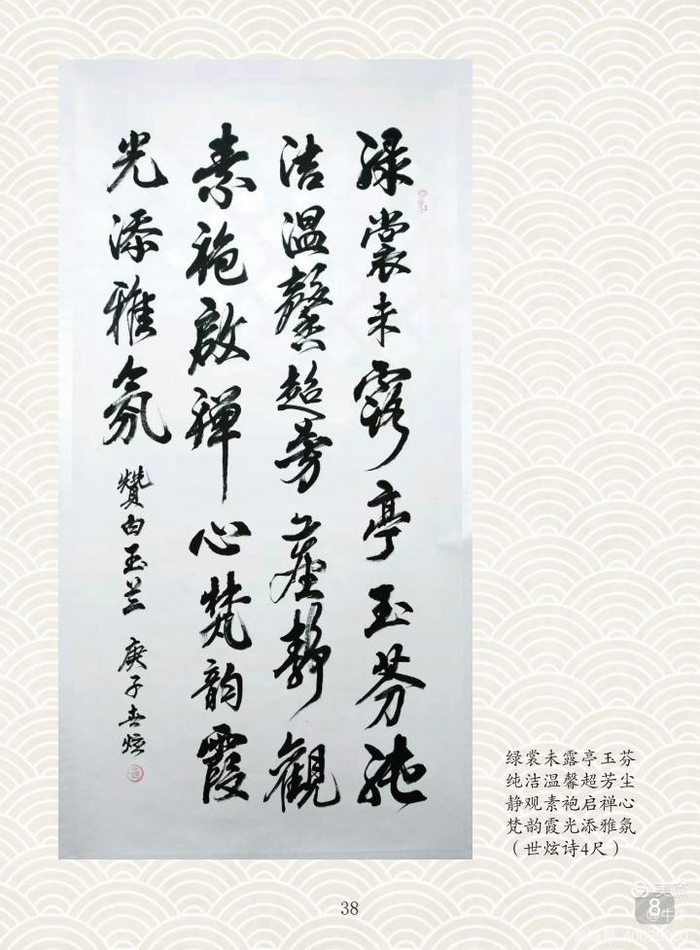 绿裳未露亭玉芬纯
洁温馨超芳尘静觀
素袍啟禅心梵韵霞
光添雅氛
赞白玉兰 庚子世炫
绿裳未露亭玉芬
纯洁温馨超芳尘
静观素袍启禅心
梵韵霞光添雅氛
（世炫诗4尺）
38
8